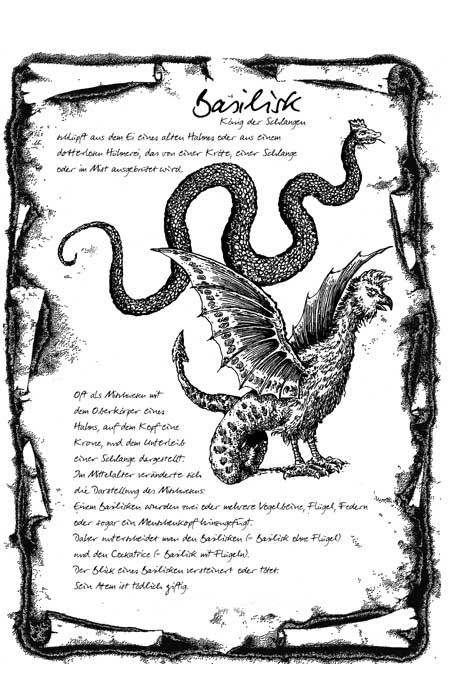 Basilisk
König der Schlangen
schlüpft aus dem Ei eines alten Hahnes oder aus einem
dotterlosen Hühnerei, das von einer Kröte, einer Schlange
oder im Mist ausgebrütet wird.
Oft als Mischwesen mit
dem Oberkörper eines
Hahns, auf dem Kopf eine
Krone, und dem Unterleib
einer Schlange dargestellt.
Im Mittelalter veränderte sich
die Darstellung des Mischwesens:
Einem Basilisken wurden zwei oder mehrere Vogelbeine, Flügel, Federn
oder sogar ein Menschenkopf hinzugefügt.
Daher unterscheidet man den Basilisken (= Basilisk ohne Flügel)
und den Cockatrice (= Basilisk mit Flügeln).
Der Blick eines Basilisken versteinert oder tötet.
Sein Atem ist tödlich giftig.